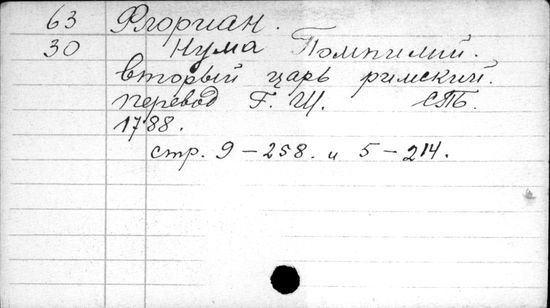 63 Флориан.
30 Нума Помпилий.
вторый царь римский.
перевод Г. Ш. СТБ.
1788.
стр. 9 – 258. и 5 – 214.